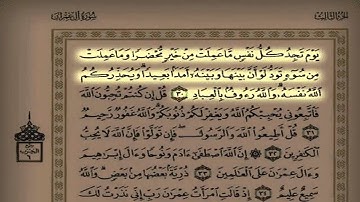 سُورَةُ آلِ عِمْرَانَ
الجُزْءُ الثَّالِثُ
يَوْمَ تَجِدُ كُلُّ نَفْسٍ مَّا عَمِلَتْ مِنْ خَيْرٍ مُّحْضَرًا وَمَا عَمِلَتْ
مِن سُوٓءٍ تَوَدُّ لَوْ أَنَّ بَيْنَهَا وَبَيْنَهُۥٓ أَمَدًۢا بَعِيدًا ۗ وَيُحَذِّرُكُمُ
ٱللَّهُ نَفْسَهُۥ ۗ وَٱللَّهُ رَءُوفٌۢ بِٱلْعِبَادِ ٣٠ قُلْ إِن كُنتُمْ تُحِبُّونَ ٱللَّهَ
فَٱتَّبِعُونِى يُحْبِبْكُمُ ٱللَّهُ وَيَغْفِرْ لَكُمْ ذُنُوبَكُمْ ۗ وَٱللَّهُ غَفُورٌ رَّحِيمٌ
٣١ قُلْ أَطِيعُوا۟ ٱللَّهَ وَٱلرَّسُولَ ۖ فَإِن تَوَلَّوْا۟ فَإِنَّ ٱللَّهَ لَا يُحِبُّ
ٱلْكَٰفِرِينَ ٣٢ إِنَّ ٱللَّهَ ٱصْطَفَىٰٓ ءَادَمَ وَنُوحًا وَءَالَ إِبْرَٰهِيمَ
وَءَالَ عِمْرَٰنَ عَلَى ٱلْعَٰلَمِينَ ٣٣ ذُرِّيَّةًۢ بَعْضُهَا مِنۢ بَعْضٍ ۗ وَٱللَّهُ
سَمِيعٌ عَلِيمٌ ٣٤ إِذْ قَالَتِ ٱمْرَأَتُ عِمْرَٰنَ رَبِّ إِنِّى نَذَرْتُ لَكَ